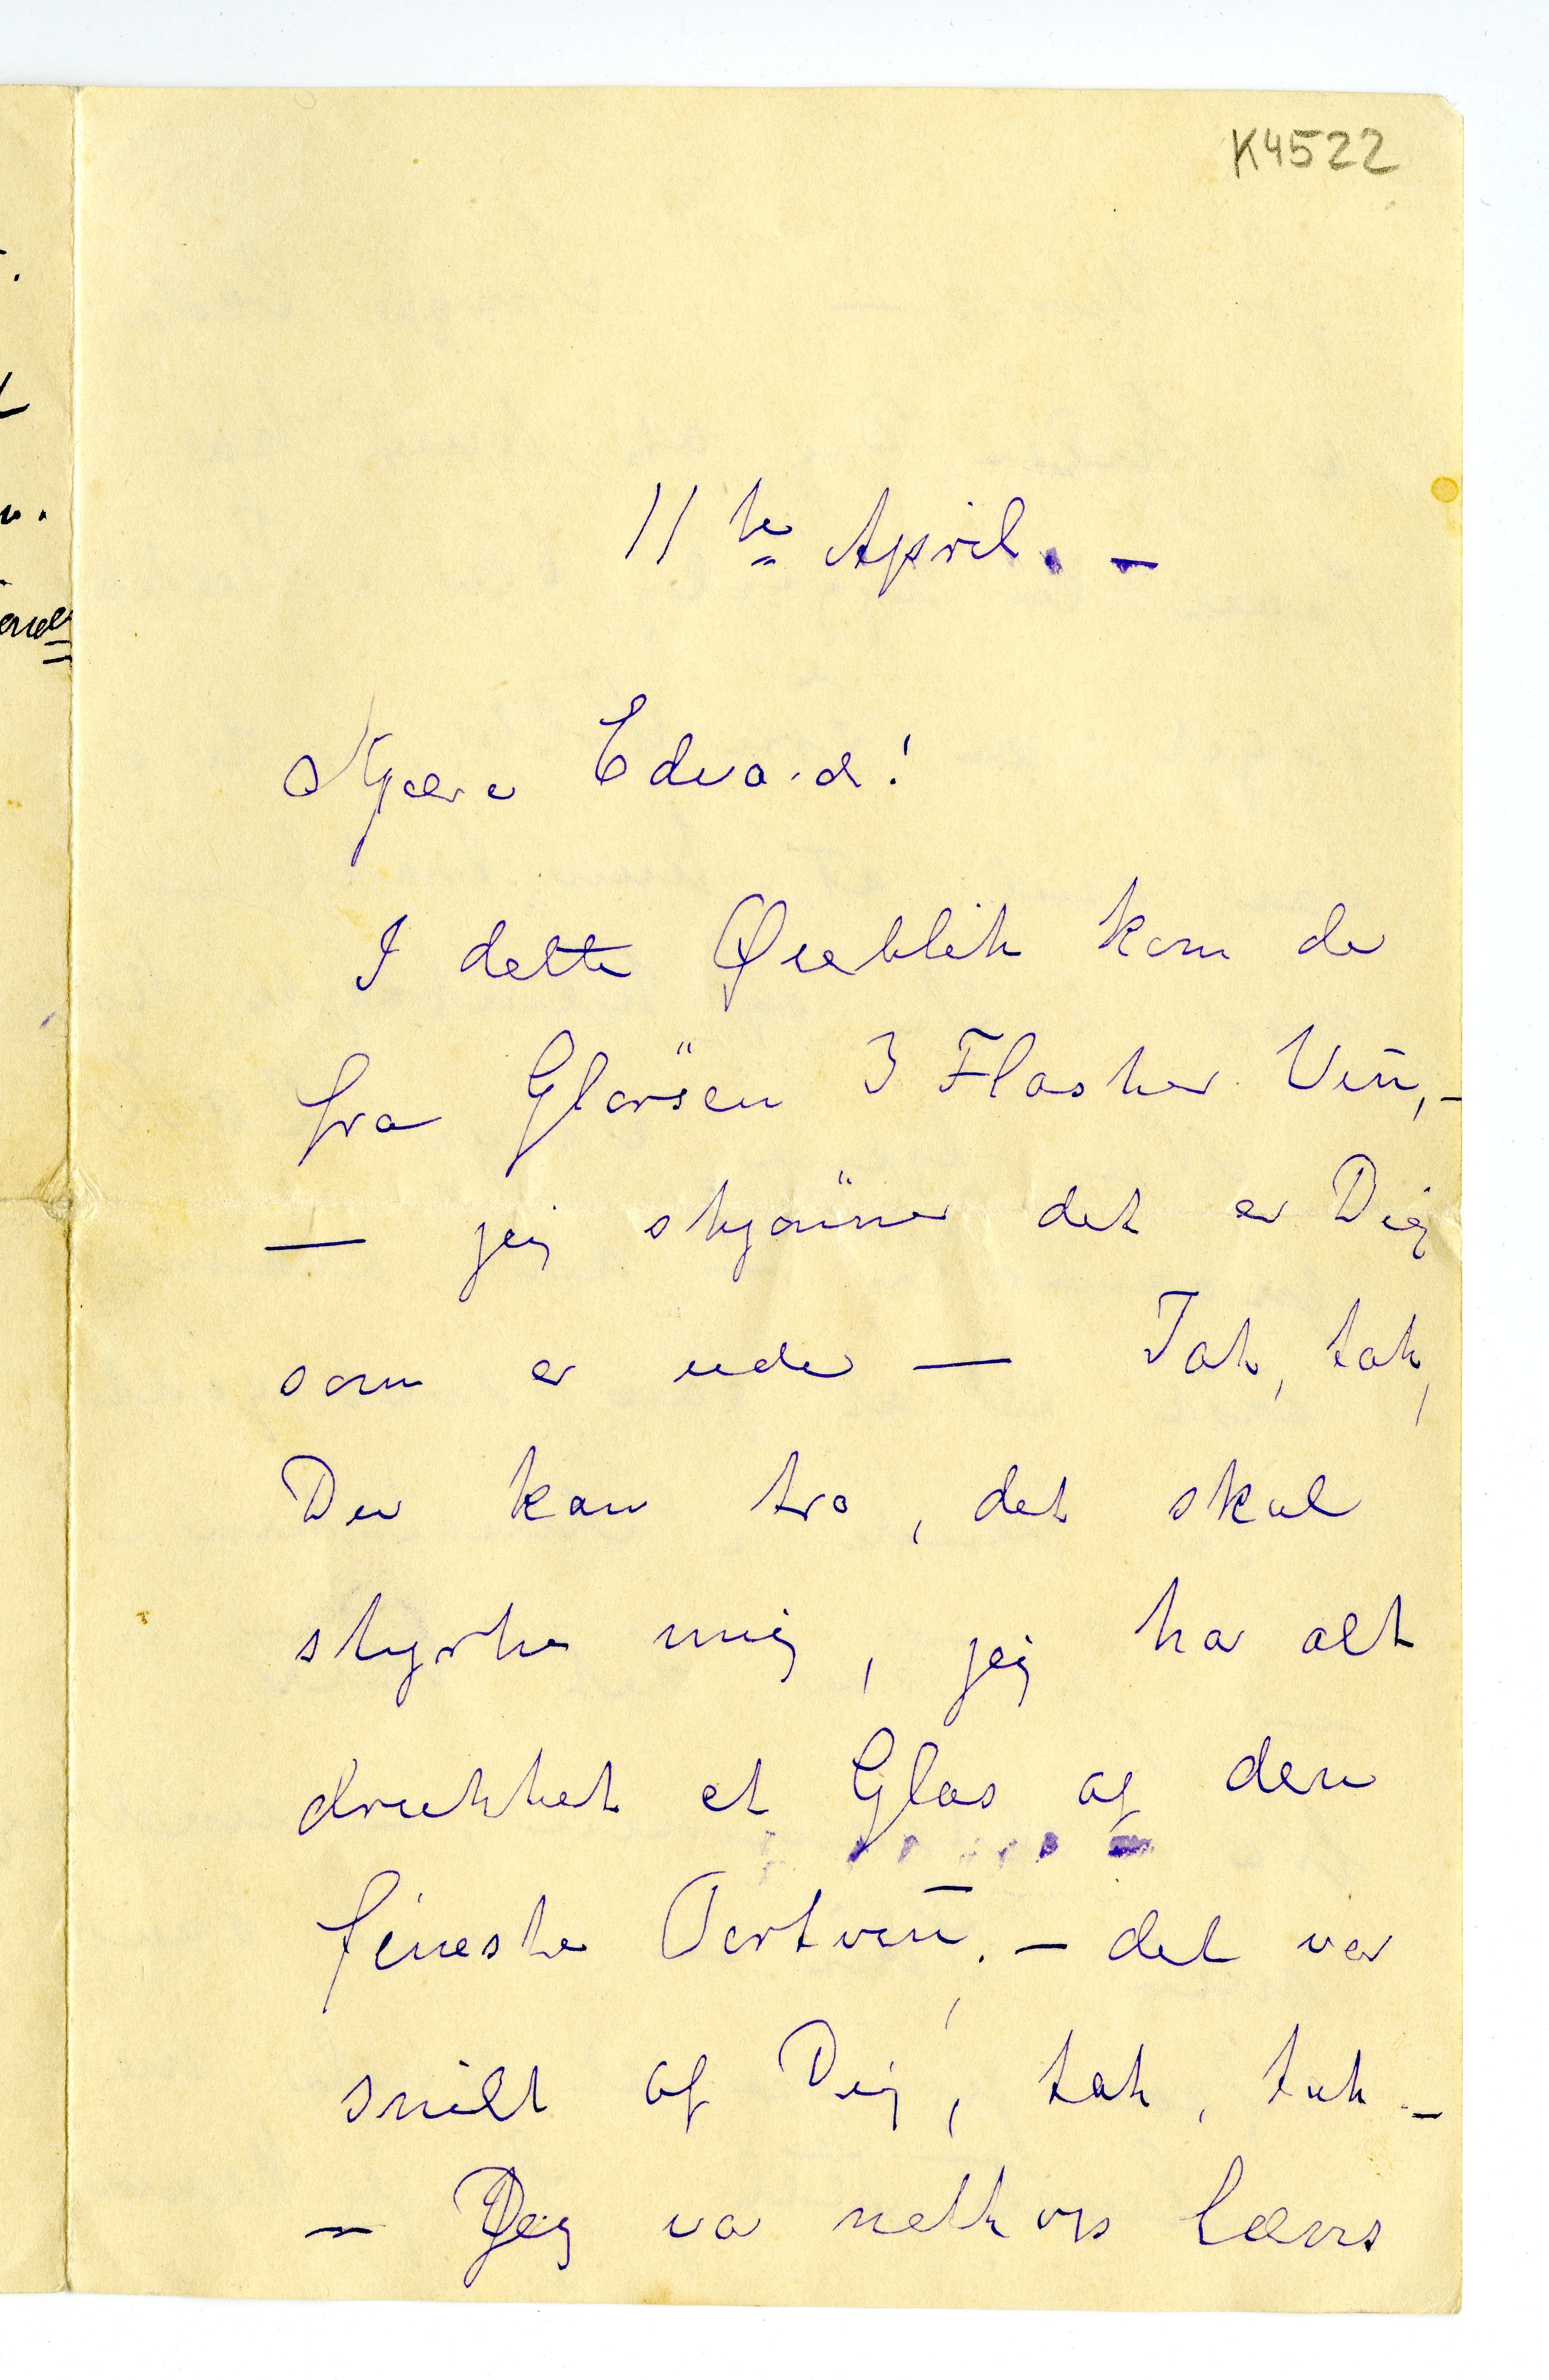 K4522
11te April. –
Kjære Edvard!
I dette Øieblik kom de
fra Glørsen 3 Flasker Vin, –
— jeg skjønner det er Dig
som er ude — Tak, tak,
Du kan tro, det skal
styrke mig, jeg har alt
drukket et Glas af den
fineste Portvin, – det var
snilt af Dig, tak, tak –
– Jeg var netop læns